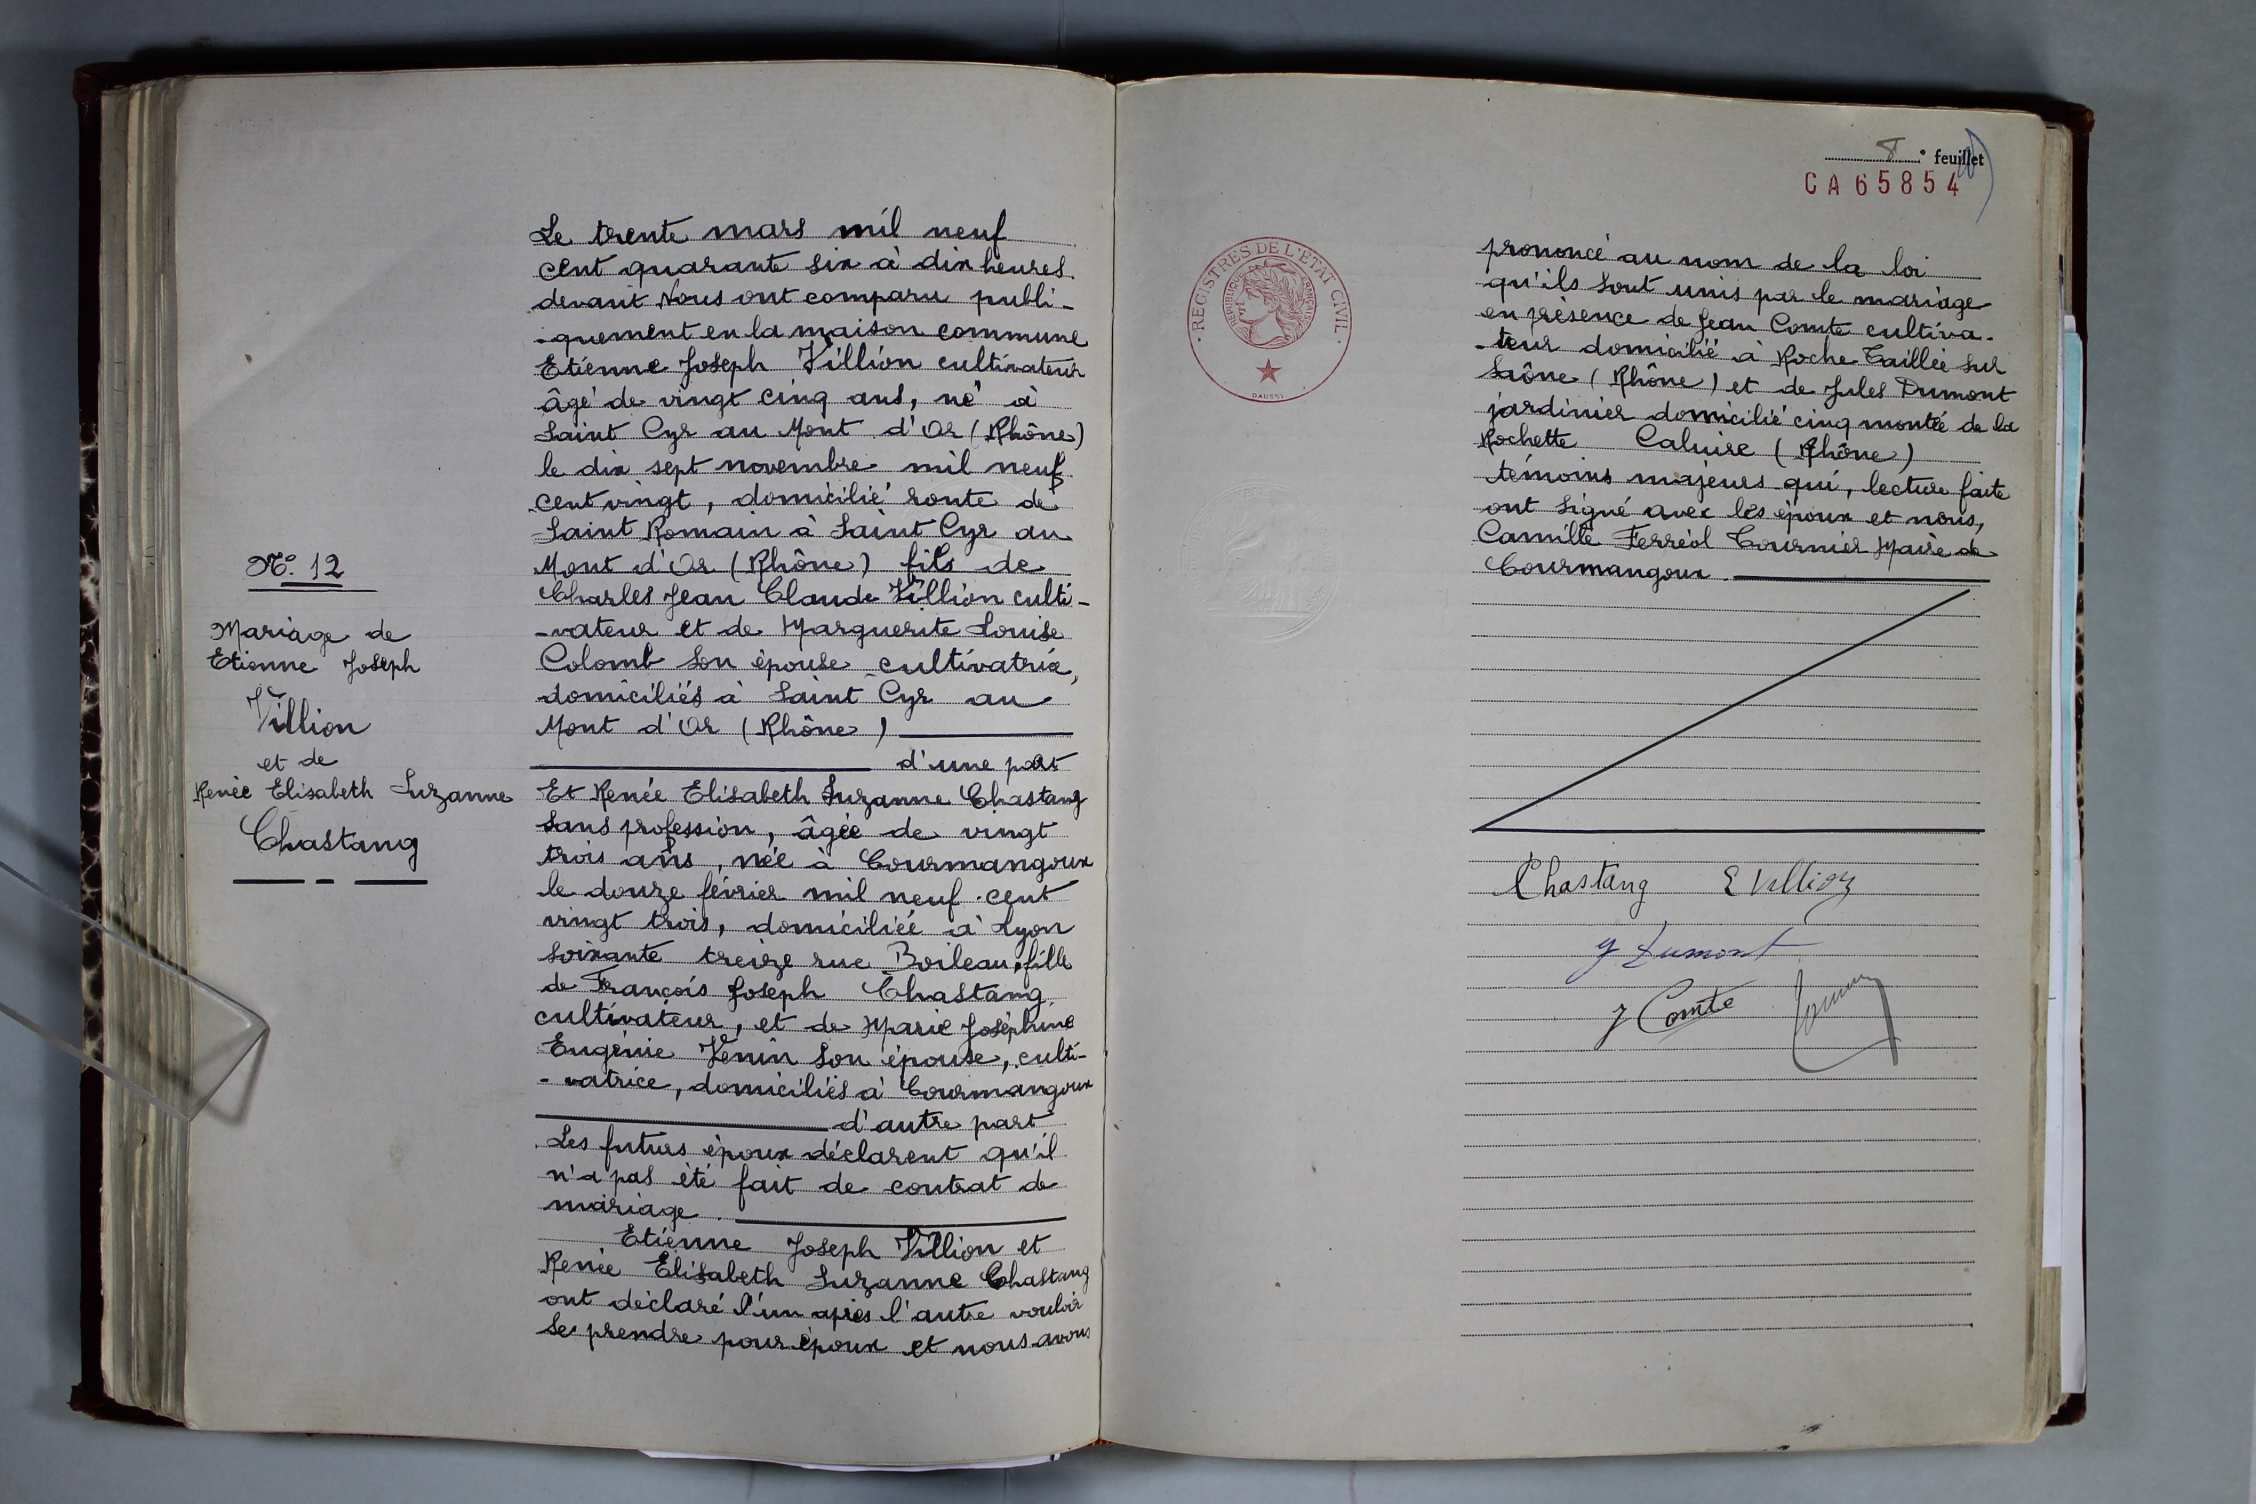 N° 12
Mariage de
Etienne Joseph
Villion
et de
Renée Elisabeth Suzanne
Chastang
Le trente mars mil neuf
cent quarante six à dix heures
devant Nous ont comparu publi-
-quement en la maison commune
Etienne Joseph Villion cultivateur
âgé de vingt cinq ans, né à
Saint Cyr au Mont d'Or (Rhône)
le dix sept novembre mil neuf
cent vingt, domicilié route de
Saint Romain à Saint Cyr au
Mont d'Or (Rhône) fils de
Charles Jean Claude Villion culti-
-vateur et de Marguerite Louise
Colomb son épouse cultivatrix,
domiciliés à Saint Cyr au
Mont d'Or (Rhône)
d'une part
Et Renée Elisabeth Suzanne Chastang
sans profession, âgée de vingt
trois ans, née à Courmangoux
le douze février mil neuf cent
vingt trois, domiciliée à Lyon
soixante treize rue Boileau, fille
de François Joseph Chastang
cultivateur, et de Marie Joséphine
Eugénie Venin son épouse, culti-
-vatrice, domiciliés à Courmangoux
d'autre part
Les futurs époux déclarent qu'il
n'a pas été fait de contrat de
mariage.
Etienne Joseph Villion et
Renée Elisabeth Suzanne Chastang
ont déclaré l'un après l'autre vouloir
se prendre pour époux et nous avons
8e feuillet
CA 65854
REGISTRES DE L'ETAT CIVIL
REPUBLIQUE FRANÇAISE
DAUSSY
prononcé au nom de la loi
qu'ils sont unis par le mariage
en présence de Jean Comte cultiva-
-teur domicilié à Roche Taillée sur
Saône (Rhône) et de Jules Dumont
jardinier domicilié cinq montée de la
Rochette Caluire (Rhône)
témoins majeurs qui, lecture faite
ont signé avec les époux et nous,
Camille Ferréol Tournier Maire de
Courmangoux.
Chastang E Villion
J Dumont
J Comte